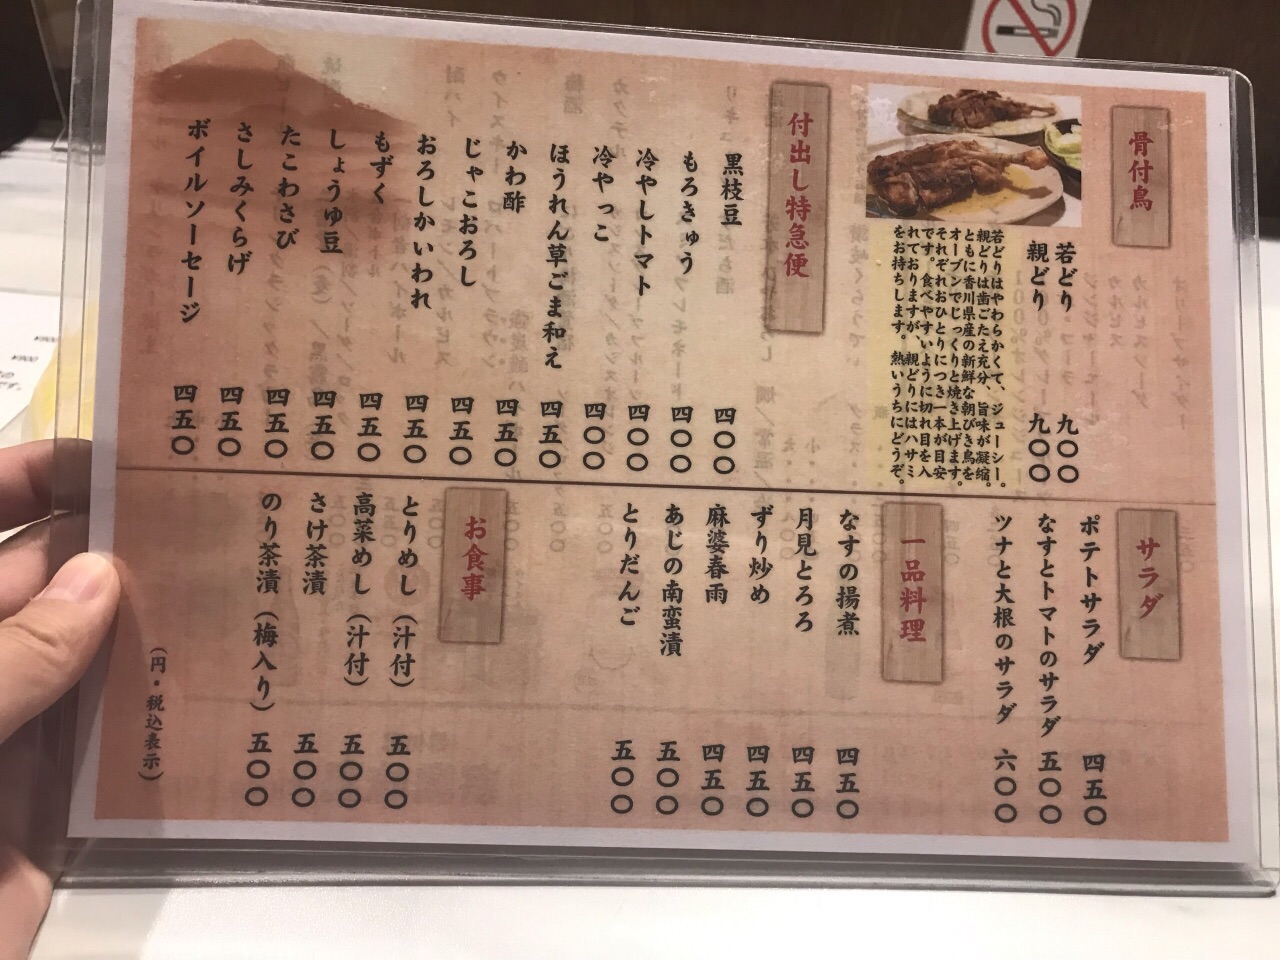 骨付鳥
若どり 九〇〇
親どり 九〇〇
若どりはやわらかくて、ジューシー。
親どりは歯ごたえ充分、旨味が凝縮。
ともに香川県産の新鮮な朝びき鳥を
オーブンでじっくりと焼き上げます。
それぞれおひとりにつき一本が目安
です。食べやすいように切れ目を入
れておりますが、親どりにはハサミ
をお持ちします。熱いうちにどうぞ。
付出し特急便
黒枝豆 四〇〇
もろきゅう 四〇〇
冷やしトマト 四〇〇
冷やっこ 四〇〇
ほうれん草ごま和え 四五〇
かわ酢 四五〇
じゃこおろし 四五〇
おろしかいわれ 四五〇
もずく 四五〇
しょうゅ豆 四五〇
たこわさび 四五〇
さしみくらげ 四五〇
ボイルソーセージ 四五〇
サラダ
ポテトサラダ 四五〇
なすとトマトのサラダ 五〇〇
ツナと大根のサラダ 六〇〇
一品料理
なすの揚煮 四五〇
月見とろろ 四五〇
ずり炒め 四五〇
麻婆春雨 四五〇
あじの南蛮漬 五〇〇
とりだんご 五〇〇
お食事
とりめし（汁付） 五〇〇
高菜めし（汁付） 五〇〇
さけ茶漬 五〇〇
のり茶漬（梅入り） 五〇〇
（円・税込表示）